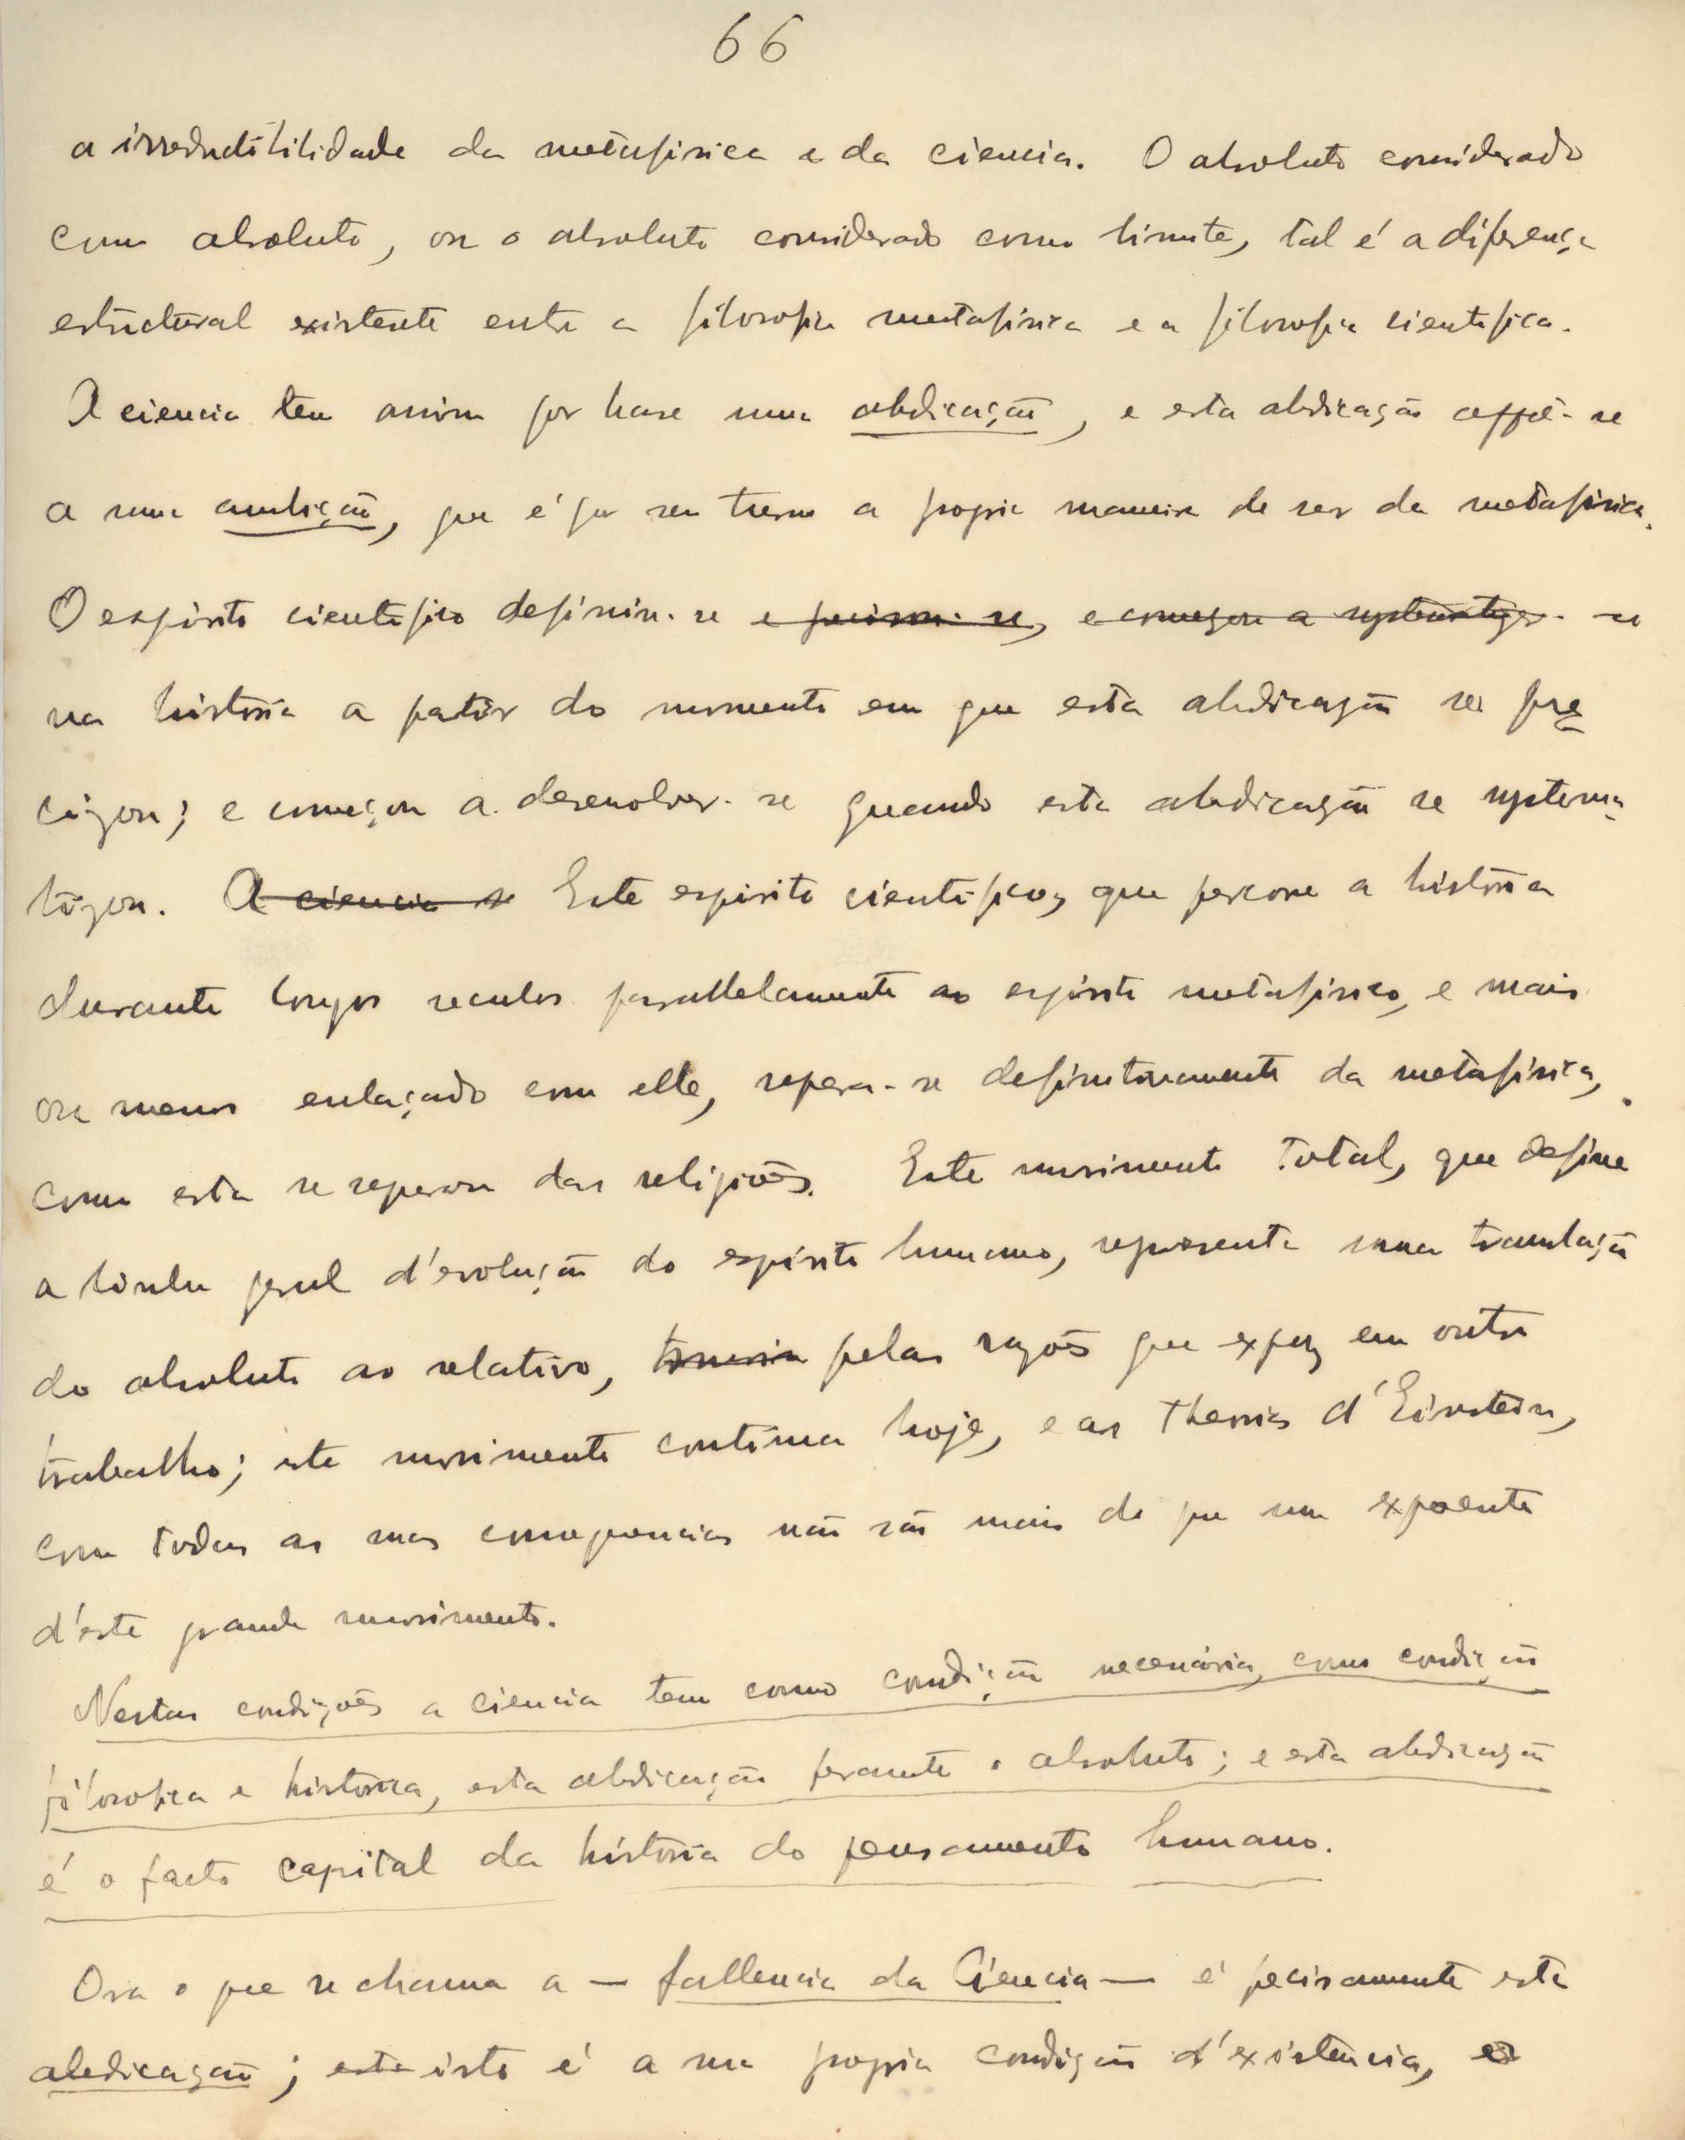 66
a irreductibilidade da metafisica e da ciencia. O absoluto considerado
como absoluto, ou o absoluto considerado como limite, tal é a diferença
estructural existente entre a filosofia metafisica e a filosofia cientifica.
A ciencia tem assim por base uma abdicação, e esta abdicação oppõe-se
a uma ambição, que é por seu turno a propria maneira de ser da metafisica.
O espirito cientifico definiu-se e precisou-se, e começou a systematizar-se
na historia a partir do momento em que esta abdicação se pre
cizou; e começou a desenvolver-se quando esta abdicação se systema
tizou. A ciencia s Este espirito cientifico, que percorre a historia
durante longos seculos parallelamente ao espirito metafisico, e mais
ou menos enlaçado com elle, separa-se definitivamente da metafisica,
como esta se separou das religiões. Este movimento total, que define
a linha geral d'evolução do espirito humano, representa uma translação
do absoluto ao relativo, pelas razões que expuz em outro
trabalho; este movimento continua hoje, e as theorias d'Einstein,
com todas as suas consequencias não são mais do que um expoente
d'este grande movimento.
Nestas condições a ciencia tem como condição necessária, como condição
filosofica e historica, esta abdicação perante o absoluto; e esta abdicação
é o facto capital da história do pensamento humano.
Ora o que se chama a — fallencia da Ciencia — é precisamente esta
abdicação; esta isto é a sua propria condição d'existencia, e